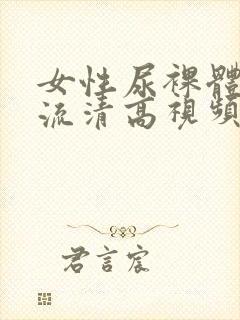 女性尿裸體
流清高視頻
君言宸